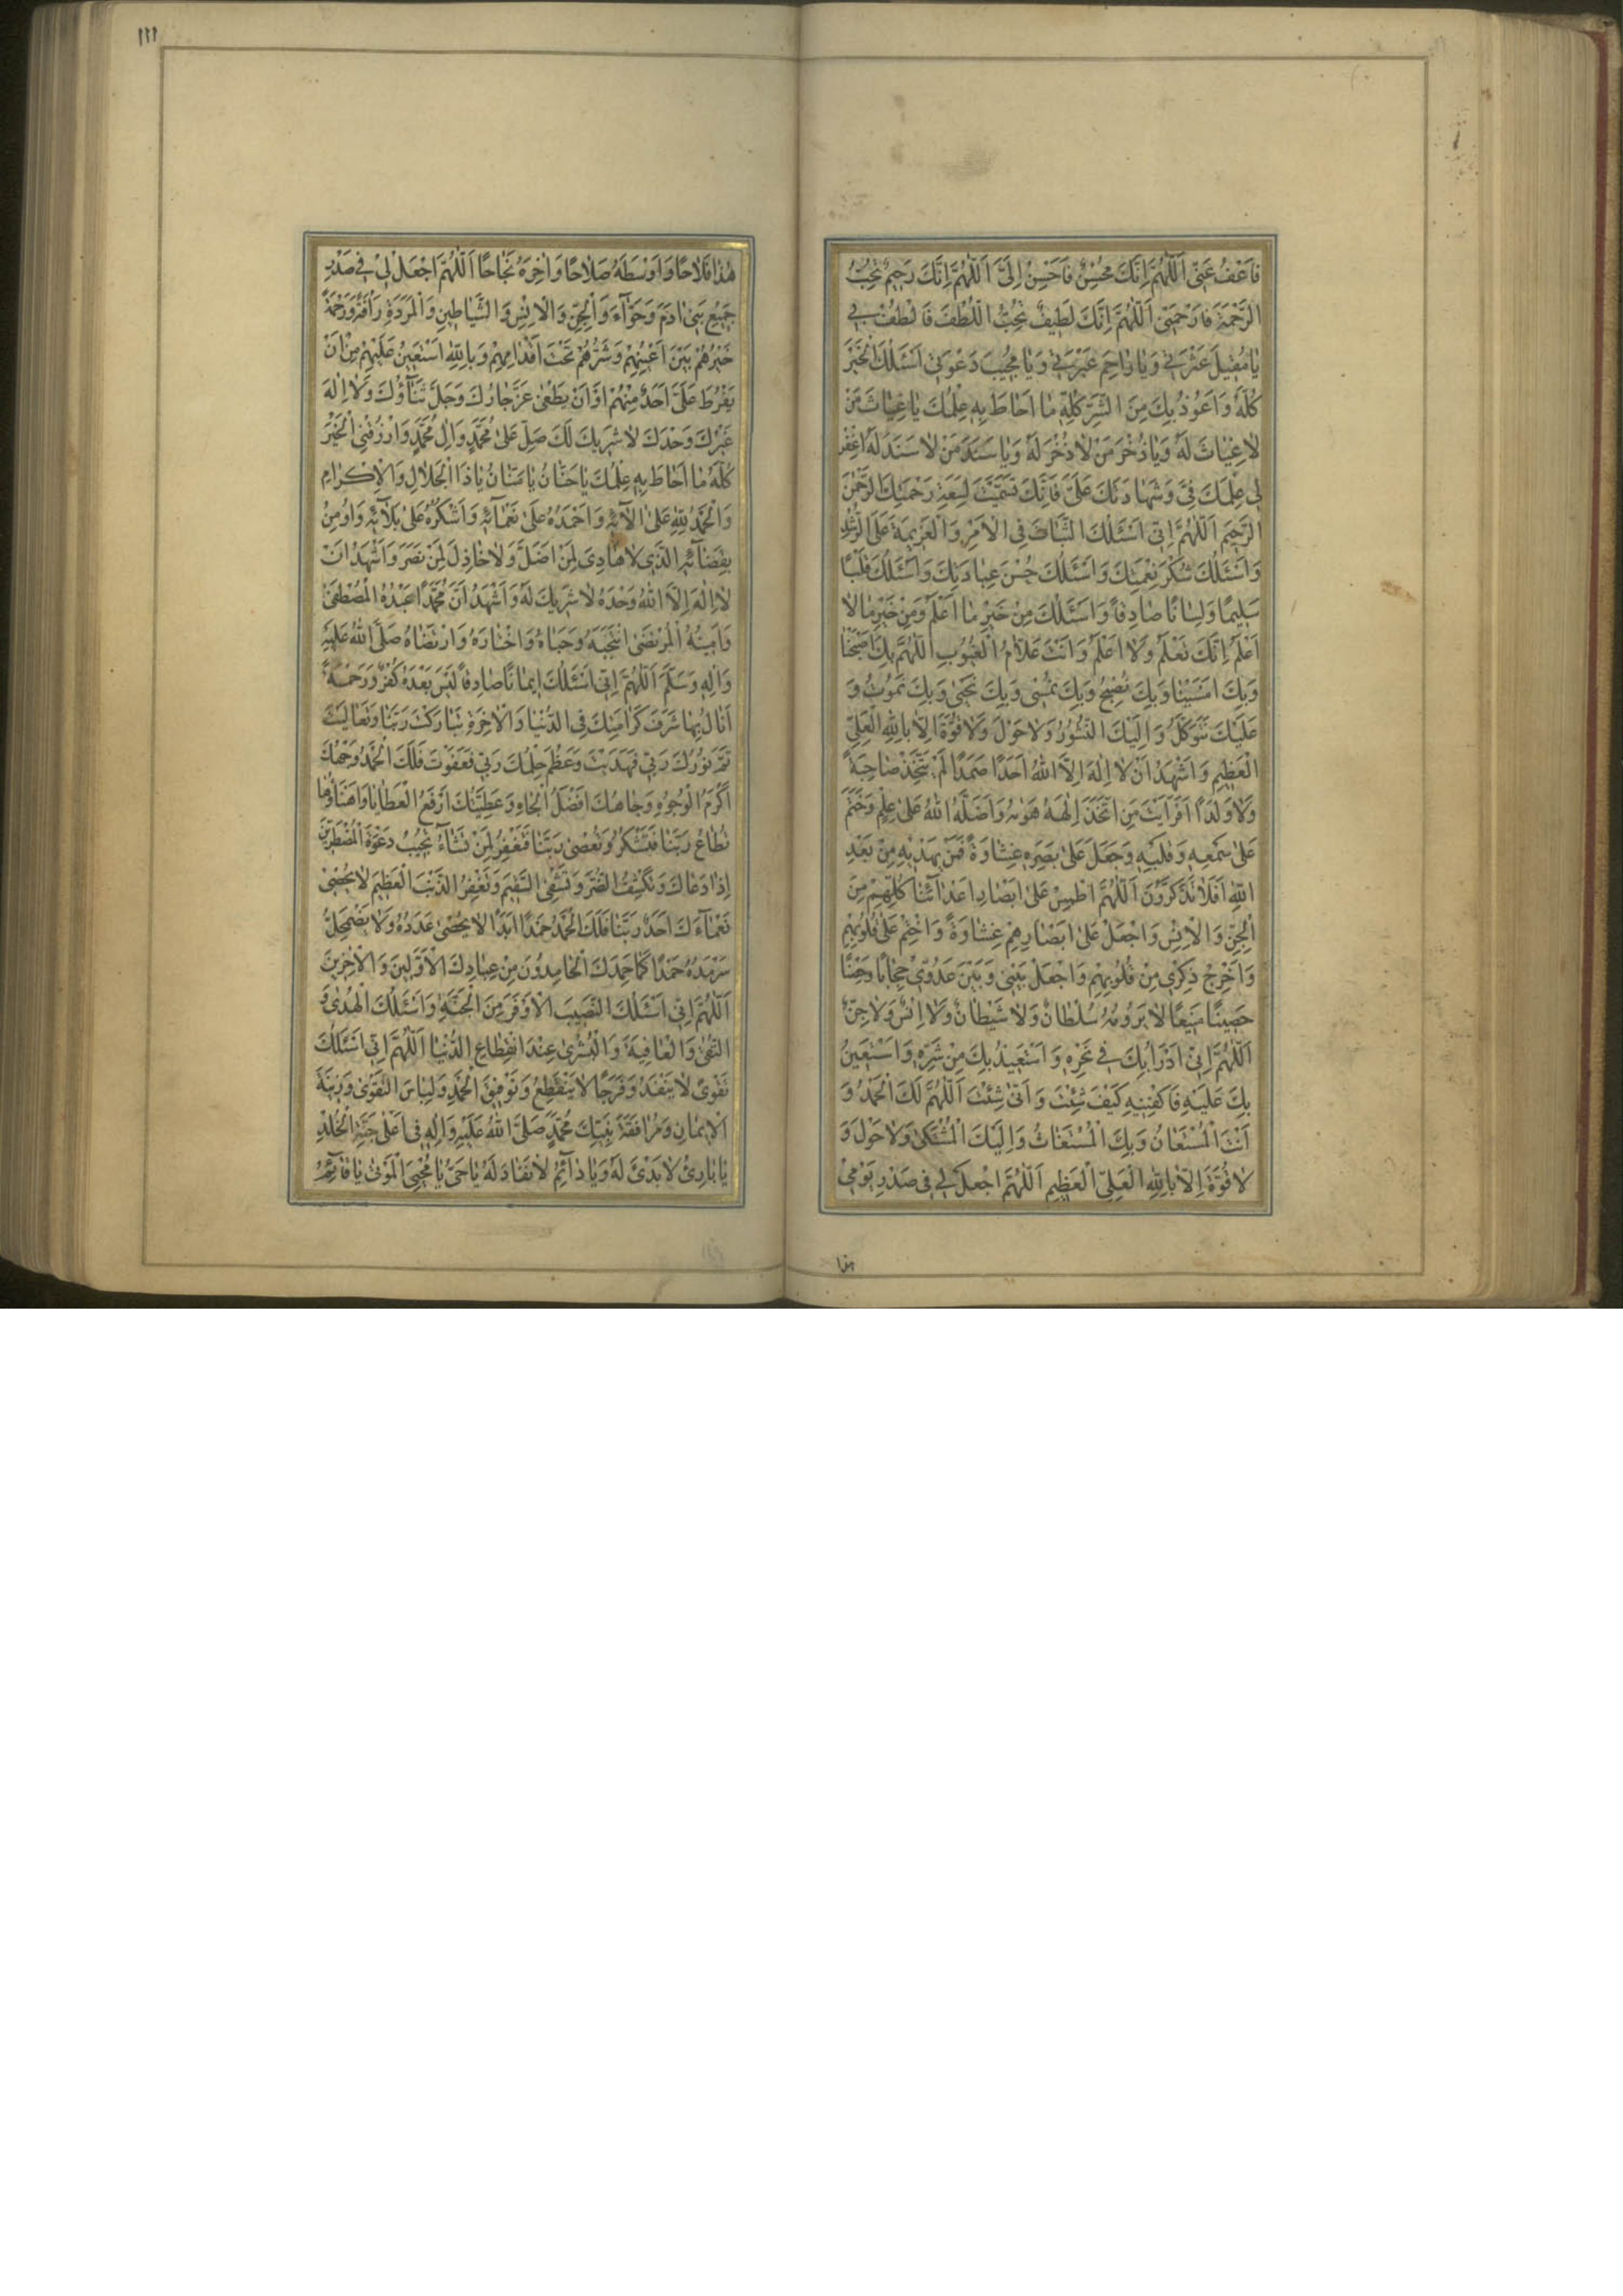 فَاعْفُ عَنّى اَللّهُمَّ اِنَّكَ مُحْسِنٌ فَاَحْسِنْ اِلَىَّ اَللّهُمَّ اِنَّكَ رَحيمٌ تُحِبُّ
الرَّحْمَةَ فَارْحَمْنى اَللّهُمَّ اِنَّكَ لَطيفٌ تُحِبُّ اللُّطْفَ فَالْطُفْ بى
يا مُقيلَ عَثْرَتى وَيا راحِمَ عَبْرَتى وَيا مُجيبَ دَعْوَتى اَسْئَلُكَ الْخَيْرَ
كُلَّهُ وَاَعُوذُ بِكَ مِنَ الشَّرِّ كُلِّهِ ما اَحاطَ بِهِ عِلْمُكَ يا غِياثَ مَنْ
لا غِياثَ لَهُ وَيا ذُخْرَ مَنْ لا ذُخْرَ لَهُ وَيا سَنَدَ مَنْ لا سَنَدَ لَهُ اغْفِرْ
لى عِلْمَكَ فِىَّ وَشَهادَتَكَ عَلَىَّ فَاِنَّكَ تَسَمَّيْتَ لِسَعَةِ رَحْمَتِكَ الرَّحْمنَ
الرَّحيمَ اَللّهُمَّ اِنّى اَسْئَلُكَ الثَّباتَ فِى الْاَمْرِ وَالْعَزيمَةَ عَلَى الرُّشْدِ
وَاَسْئَلُكَ شُكْرَ نِعْمَتِكَ وَاَسْئَلُكَ حُسْنَ عِبادَتِكَ وَاَسْئَلُكَ قَلْبًا
سَليمًا وَلِسانًا صادِقًا وَاَسْئَلُكَ مِنْ خَيْرِ ما اَعْلَمُ وَمِنْ خَيْرِ ما لا
اَعْلَمُ اِنَّكَ تَعْلَمُ وَلا اَعْلَمُ وَاَنْتَ عَلّامُ الْغُيُوبِ اَللّهُمَّ بِكَ اَصْبَحْنا
وَبِكَ اَمْسَيْنا وَبِكَ نُصْبِحُ وَبِكَ نُمْسى وَبِكَ نَحْيى وَبِكَ نَمُوتُ وَ
عَلَيْكَ نَتَوَكَّلُ وَاِلَيْكَ النُّشُورُ وَلا حَوْلَ وَلا قُوَّةَ اِلّا بِاللهِ الْعَلِىِّ
الْعَظيمِ وَاَشْهَدُ اَنْ لا اِلهَ اِلَّا اللهُ اَحَدًا صَمَدًا لَمْ يَتَّخِذْ صاحِبَةً
وَلا وَلَدًا اَفَرَاَيْتَ مَنِ اتَّخَذَ اِلهَهُ هَويهُ وَاَضَلَّهُ اللهُ عَلى عِلْمٍ وَخَتَمَ
عَلى سَمْعِهِ وَقَلْبِهِ وَجَعَلَ عَلى بَصَرِهِ غِشاوَةً فَمَنْ يَهْديهِ مِنْ بَعْدِ
اللهِ اَفَلا تَذَكَّرُونَ اَللّهُمَّ اطْمِسْ عَلى اَبْصارِ اَعْدآئِنا كُلِّهِمْ مِنَ
الْجِنِّ وَالْاِنْسِ وَاجْعَلْ عَلى اَبْصارِهِمْ غِشاوَةً وَاخْتِمْ عَلى قُلُوبِهِمْ
وَاَخْرِجْ ذِكْرى مِنْ قُلُوبِهِمْ وَاجْعَلْ بَيْنى وَبَيْنَ عَدُوّى حِجابًا وَحِصْنًا
حَصينًا مَنيعًا لا يَرُومُهُ سُلْطانٌ وَلا شَيْطانٌ وَلا اِنْسٌ وَلا جِنٌّ
اَللّهُمَّ اِنّى اَدْرَاُ بِكَ فى نَحْرِهِ وَاَسْتَعيذُ بِكَ مِنْ شَرِّهِ وَاَسْتَعينُ
بِكَ عَلَيْهِ فَاكْفِنيهِ كَيْفَ شِئْتَ وَاَنّى شِئْتَ اَللّهُمَّ لَكَ الْحَمْدُ وَ
اَنْتَ الْمُسْتَعانُ وَبِكَ الْمُسْتَغاثُ وَاِلَيْكَ الْمُشْتَكى وَلا حَوْلَ وَ
لا قُوَّةَ اِلّا بِاللهِ الْعَلِىِّ الْعَظيمِ اَللّهُمَّ اجْعَلْ لى فى صَدْرِ يَوْمى
هذا
١١١
هذا فَلاحًا وَاَوْسَطَهُ صَلاحًا وَاخِرَهُ نَجاحًا اَللّهُمَّ اجْعَلْ لى فى صَدْرِ
جَميعِ بَنى ادَمَ وَحَوّآءَ وَالْجِنِّ وَالْاِنْسِ وَالشَّياطينِ وَالْمَرَدَةِ رَاْفَةً وَرَحْمَةً
خَيْرُهُمْ بَيْنَ اَعْيُنِهِمْ وَشَرُّهُمْ تَحْتَ اَقْدامِهِمْ وَبِاللهِ اَسْتَعينُ عَلَيْهِمْ مِنْ اَنْ
يَفْرُطَ عَلَىَّ اَحَدٌ مِنْهُمْ اَوْ اَنْ يَطْغى عَزَّ جارُكَ وَجَلَّ ثَنآؤُكَ وَلا اِلهَ
غَيْرُكَ وَحْدَكَ لا شَريكَ لَكَ صَلِّ عَلى مُحَمَّدٍ وَالِ مُحَمَّدٍ وَارْزُقْنِى الْخَيْرَ
كُلَّهُ ما اَحاطَ بِهِ عِلْمُكَ يا حَنّانُ يا مَنّانُ يا ذَا الْجَلالِ وَالْاِكْرامِ
وَالْحَمْدُ لِلّهِ عَلى الآئِهِ وَاَحْمَدُهُ عَلى نَعْمآئِهِ وَاَشْكُرُهُ عَلى بَلآئِهِ وَاُومِنُ
بِقَضآئِهِ الَّذى لا هادِىَ لِمَنْ اَضَلَّ وَلا خاذِلَ لِمَنْ نَصَرَ وَاَشْهَدُ اَنْ
لا اِلهَ اِلَّا اللهُ وَحْدَهُ لا شَريكَ لَهُ وَاَشْهَدُ اَنَّ مُحَمَّدًا عَبْدُهُ الْمُصْطَفى
وَاَمينُهُ الْمُرْتَضى انْتَجَبَهُ وَحَباهُ وَاخْتارَهُ وَارْتَضاهُ صَلَّى اللهُ عَلَيْهِ
وَالِهِ وَسَلَّمَ اَللّهُمَّ اِنّى اَسْئَلُكَ ايمانًا صادِقًا لَيْسَ بَعْدَهُ كُفْرٌ وَرَحْمَةً
اَنالُ بِها شَرَفَ كَرامَتِكَ فِى الدُّنْيا وَالْاخِرَةِ تَبارَكْتَ رَبَّنا وَتَعالَيْتَ
تَمَّ نُورُكَ رَبّى فَهَدَيْتَ وَعَظُمَ حِلْمُكَ رَبّى فَعَفَوْتَ فَلَكَ الْحَمْدُ وَجْهُكَ
اَكْرَمُ الْوُجُوهِ وَجاهُكَ اَفْضَلُ الْجاهِ وَعَطِيَّتُكَ اَرْفَعُ الْعَطايا وَاَهْنَاُها
تُطاعُ رَبَّنا فَتَشْكُرُ وَتُعْصى رَبَّنا فَتَغْفِرُ لِمَنْ تَشآءُ تُجيبُ دَعْوَةَ الْمُضْطَرّينَ
اِذا دَعاكَ وَتَكْشِفُ الضُّرَّ وَتَشْفِى السَّقيمَ وَتَغْفِرُ الذَّنْبَ الْعَظيمَ لا يُحْصى
نَعْمآءَكَ اَحَدٌ رَبَّنا فَلَكَ الْحَمْدُ حَمْدًا اَبَدًا لا يُحْصى عَدَدُهُ وَلا يَضْمَحِلُّ
سَرْمَدُهُ حَمْدًا كَما حَمِدَكَ الْحامِدُونَ مِنْ عِبادِكَ الْاَوَّلينَ وَالْاخِرينَ
اَللّهُمَّ اِنّى اَسْئَلُكَ النَّصيبَ الْاَوْفَرَ مِنَ الْجَنَّةِ وَاَسْئَلُكَ الْهُدى وَ
التُّقى وَالْعافِيَةَ وَالْبُشْرى عِنْدَ انْقِطاعِ الدُّنْيا اَللّهُمَّ اِنّى اَسْئَلُكَ
تَقْوًى لا يَنْفَدُ وَفَرَجًا لا يَنْقَطِعُ وَتَوْفيقَ الْحَمْدِ وَلِباسَ التَّقْوى وَزينَةَ
الْايمانِ وَمُرافَقَةَ نَبِيِّكَ مُحَمَّدٍ صَلَّى اللهُ عَلَيْهِ وَالِهِ فى اَعْلى جَنَّةِ الْخُلْدِ
يا بارِئُ لا بَدْئَ لَهُ وَيا دآئِمُ لا نَفادَ لَهُ يا حَىُّ يا مُحْيِىَ الْمَوْتى يا قآئِمُ